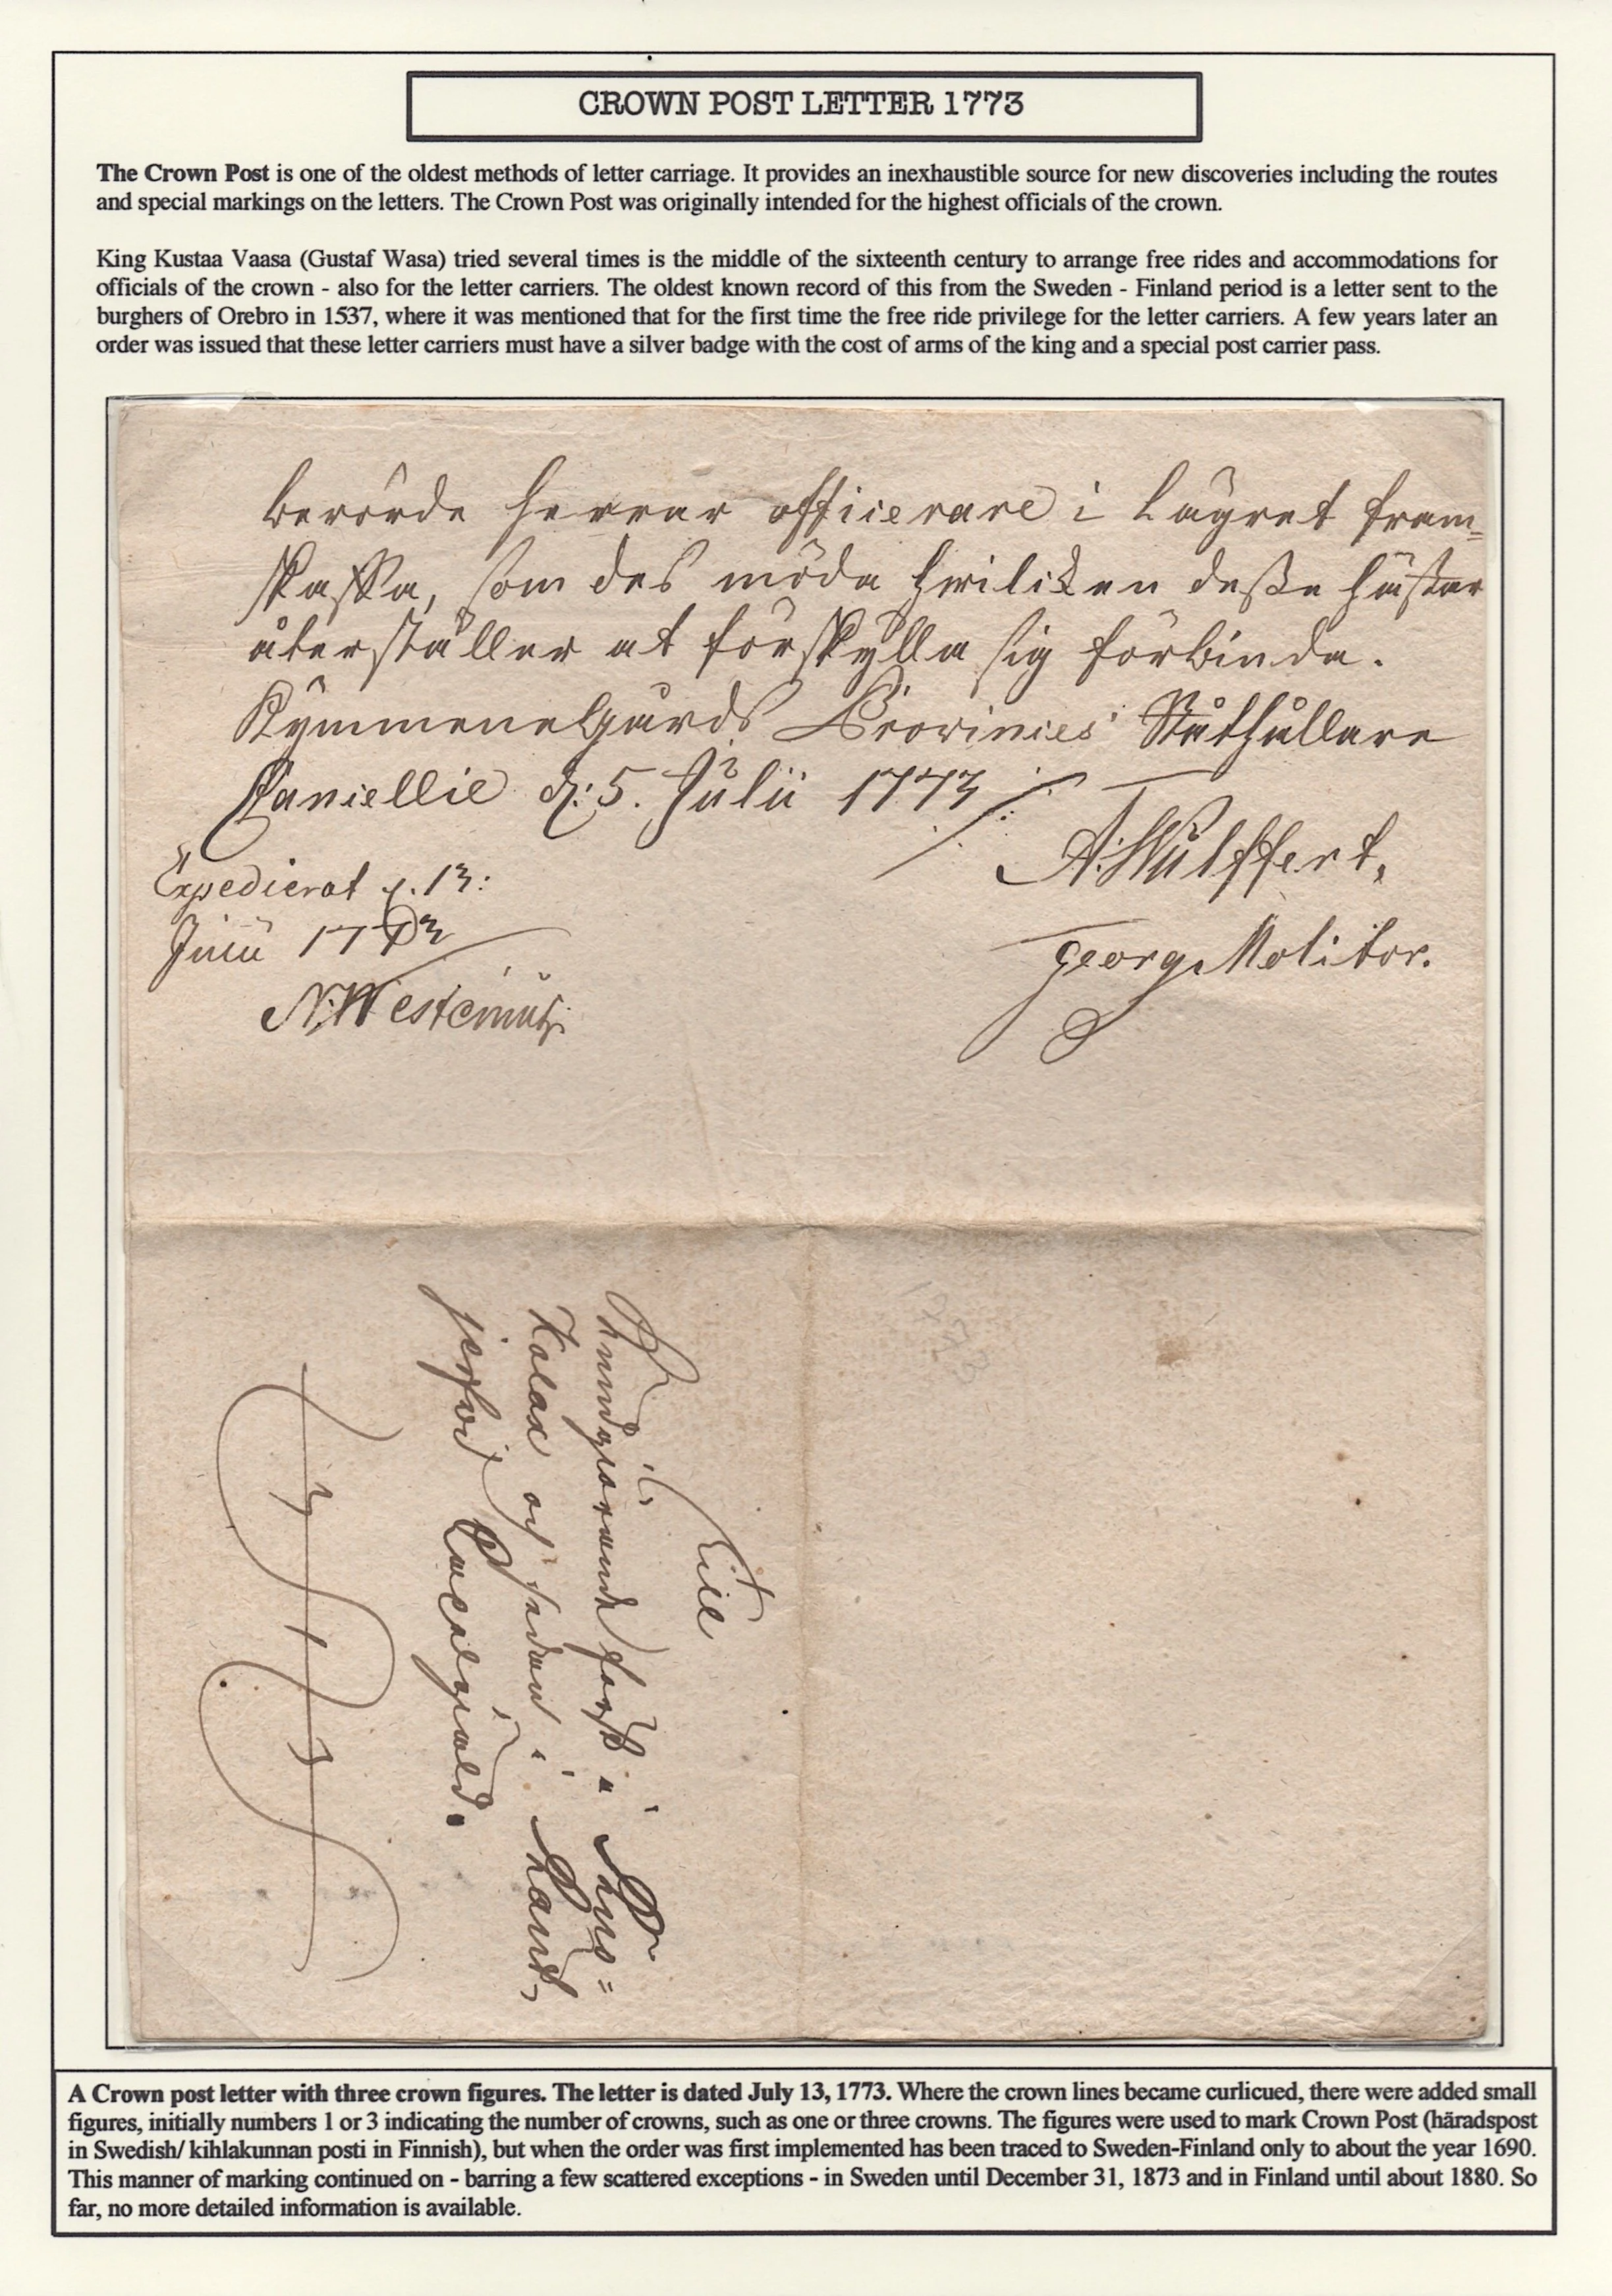 CROWN POST LETTER 1773
The Crown Post is one of the oldest methods of letter carriage. It provides an inexhaustible source for new discoveries including the routes
and special markings on the letters. The Crown Post was originally intended for the highest officials of the crown.
King Kustaa Vaasa (Gustaf Wasa) tried several times is the middle of the sixteenth century to arrange free rides and accommodations for
officials of the crown - also for the letter carriers. The oldest known record of this from the Sweden - Finland period is a letter sent to the
burghers of Orebro in 1537, where it was mentioned that for the first time the free ride privilege for the letter carriers. A few years later an
order was issued that these letter carriers must have a silver badge with the cost of arms of the king and a special post carrier pass.
berörde herrar officerare i Lägret fram=
skaffa, som des möda hvilcken desse hästar
återställer at förskylla sig förbinda.
Kymmenegårds Provincies Ståthållare
Cancellie d: 5. Julii 1773
A: Wulffert,
Expedierat d. 13:
Julii 1773
Georg Molitor.
N: West
Till
i
och sedan i
A Crown post letter with three crown figures. The letter is dated July 13, 1773. Where the crown lines became curlicued, there were added small
figures, initially numbers 1 or 3 indicating the number of crowns, such as one or three crowns. The figures were used to mark Crown Post (häradspost
in Swedish/ kihlakunnan posti in Finnish), but when the order was first implemented has been traced to Sweden-Finland only to about the year 1690.
This manner of marking continued on - barring a few scattered exceptions - in Sweden until December 31, 1873 and in Finland until about 1880. So
far, no more detailed information is available.